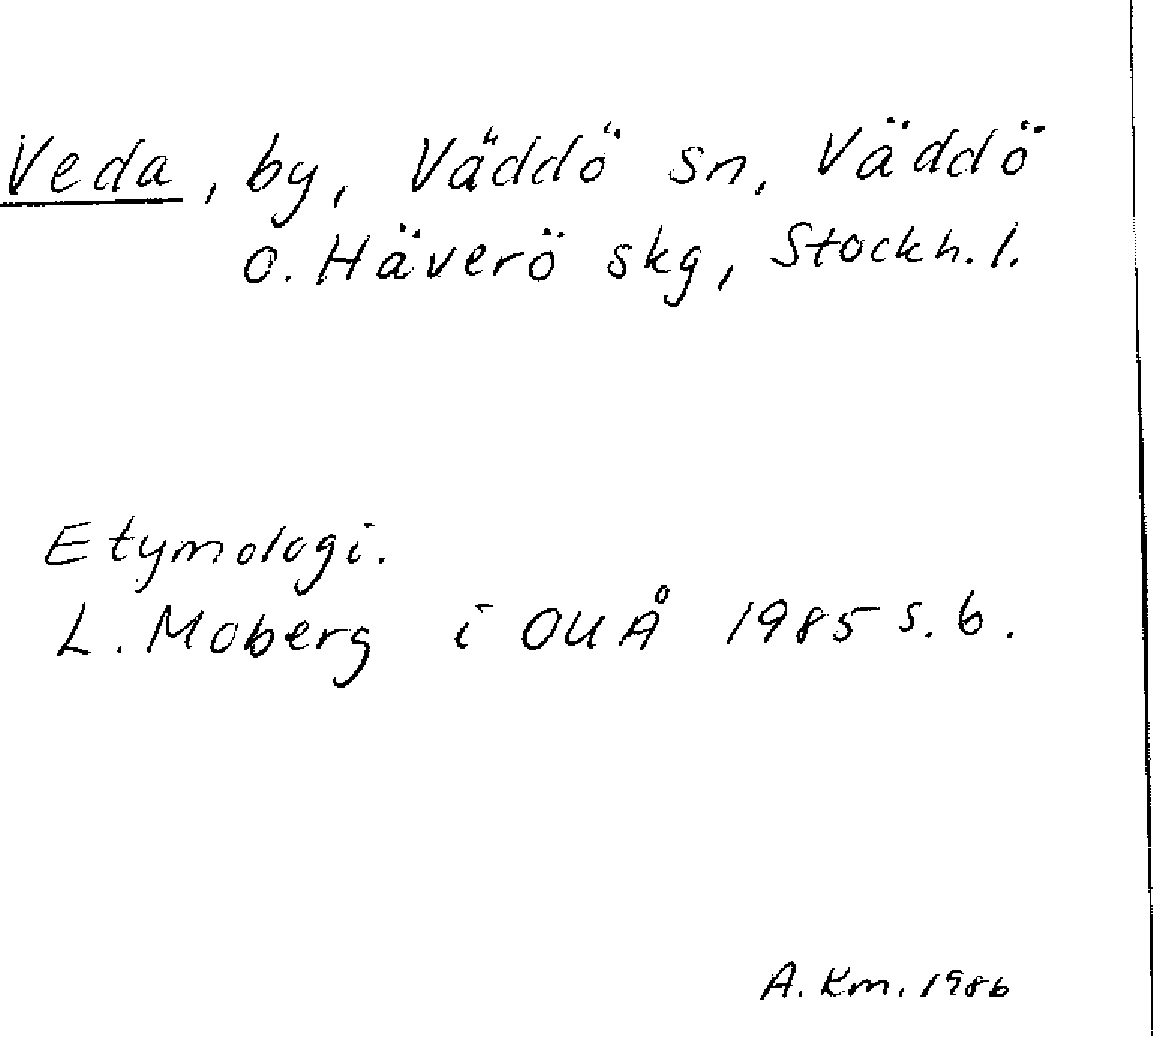 Veda, by, Väddö sn, Väddö
o. Häverö skg, Stockh. l.
Etymologi.
L. Moberg i OUÅ 1985 s. 6.
A. Km. 1986